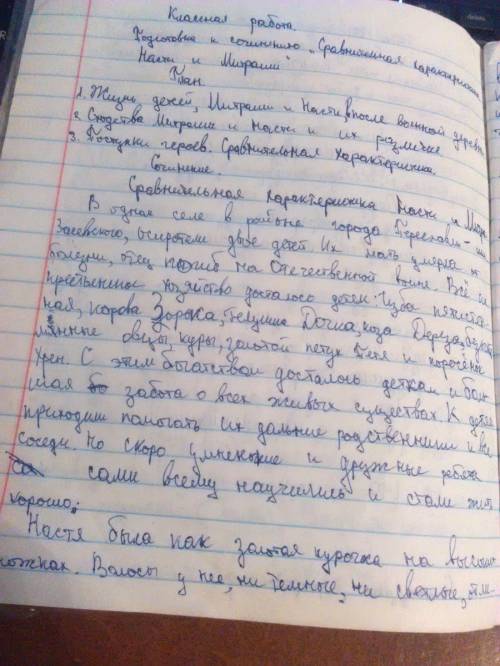 Классная работа.
Подготовка к сочинению „Сравнительная характеристика
Насти и Митраши"
План
1. Жизнь детей, Митраши и Насти в после военной деревне
2. Сходства Митраши и Насти и их различие
3. Поступки героев. Сравнительная характеристика.
Сочинение.
Сравнительная характеристика Насти и
В одном селе в районе города Переславль-
Залевского, осиротели двое детей. Их мать умерла от
болезни, отец погиб на Отечественной войне. Всё их
крестьянское хозяйство досталось детям: Изба пятистен
ная, корова Зорька, телушка Дочка, коза Дереза,
мянные овцы, куры, золотой петух Петя и поросёнок
Хрен. С этим богатством досталось деткам и боль
шая забота о всех живых существах. К детям
приходили помогать их дальние родственники и все
соседи. Но скоро умненькие и дружные ребята
сами всему научились и стали жить
хорошо.
Настя была как золотая курочка на высоких
ножках. Волосы у нее, ни темные, ни светлые, отли-